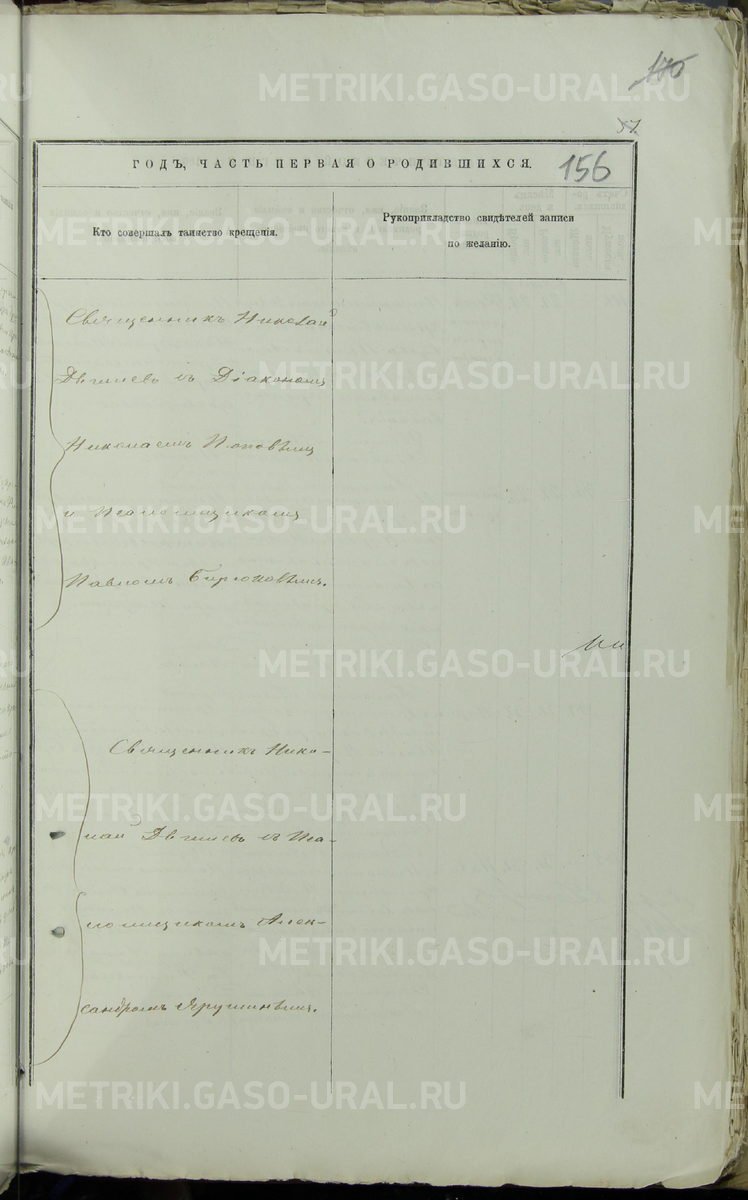 170
57.
ГОДЪ, ЧАСТЬ ПЕРВАЯ О РОДИВШИХСЯ.
156
Кто совершалъ таинство крещенія.
Рукоприкладство свидѣтелей записи
по желанію.
Священникъ Николай
съ Діакономъ
Николаемъ Поповымъ
и Псаломщикомъ
Павломъ Бирюковымъ.
Священникъ Нико-
лай съ Пса-
ломщикомъ Алек-
сандромъ
METRIKI.GASO-URAL.RU